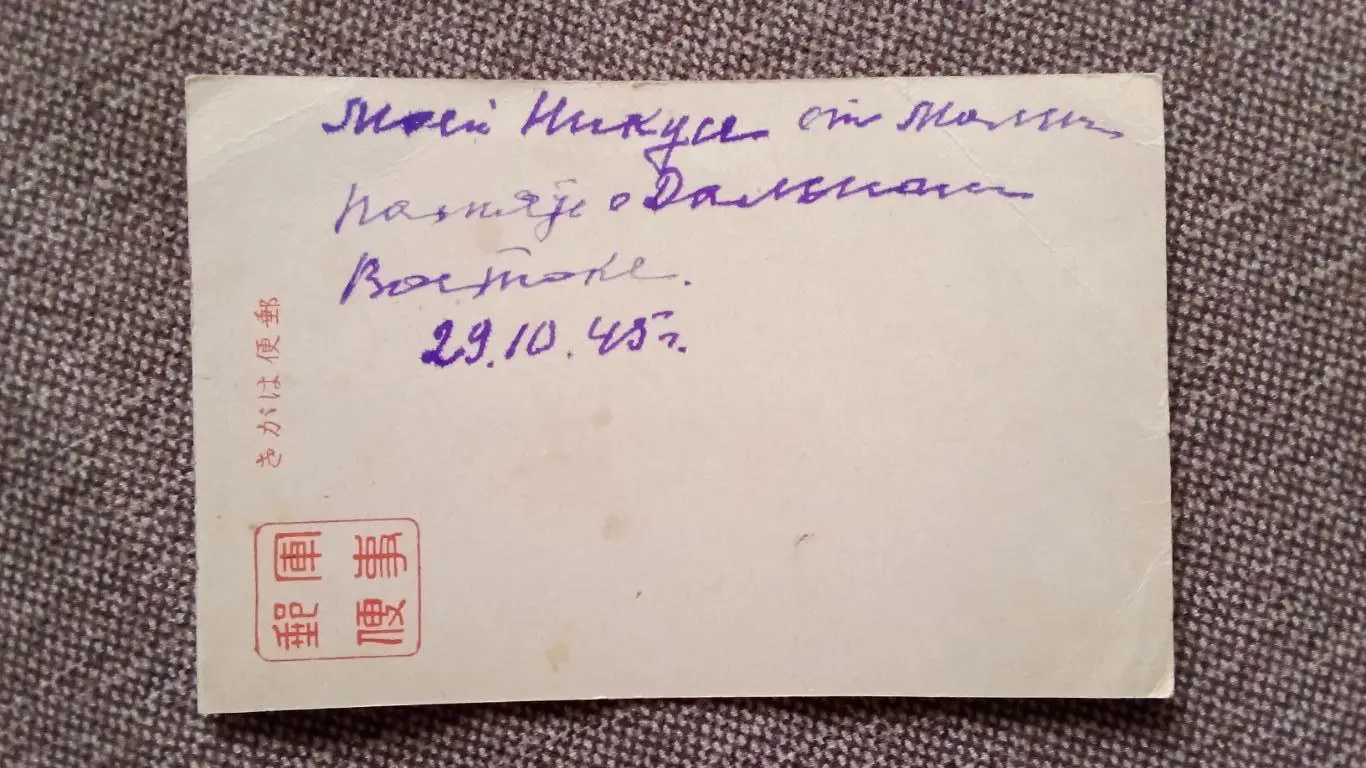 Моей Никусе от Мамы
память о Дальнем
Востоке.
29.10.45г.
郵便はがき
軍事
郵便